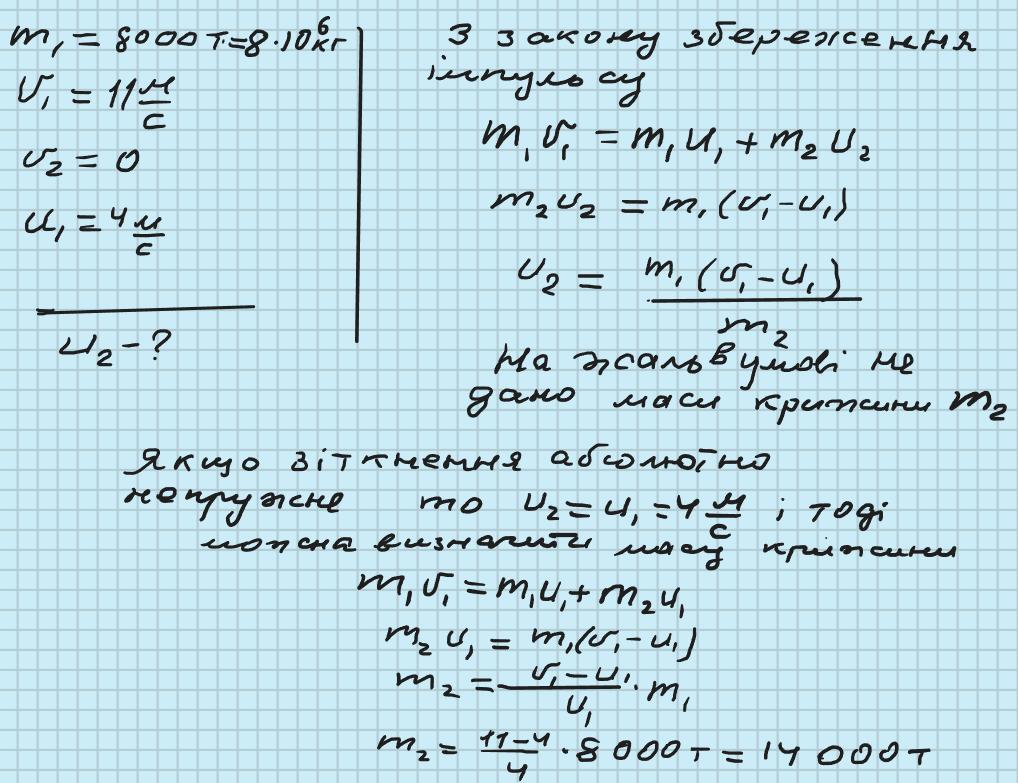 m₁ = 8000 т = 8·10⁶ кг
v₁ = 11 м/с
v₂ = 0
u₁ = 4 м/с
u₂ - ?
З закону збереження
імпульсу
m₁v₁ = m₁u₁ + m₂u₂
m₂u₂ = m₁(v₁ - u₁)
u₂ = m₁(v₁ - u₁) / m₂
На жаль в умові не
дано маси крижини m₂
Якщо зіткнення абсолютно
непружне то u₂ = u₁ = 4 м/с і тоді
можна визначити масу крижини
m₁v₁ = m₁u₁ + m₂u₁
m₂u₁ = m₁(v₁ - u₁)
m₂ = (v₁ - u₁)/u₁ · m₁
m₂ = (11-4)/4 · 8000 т = 14 000 т